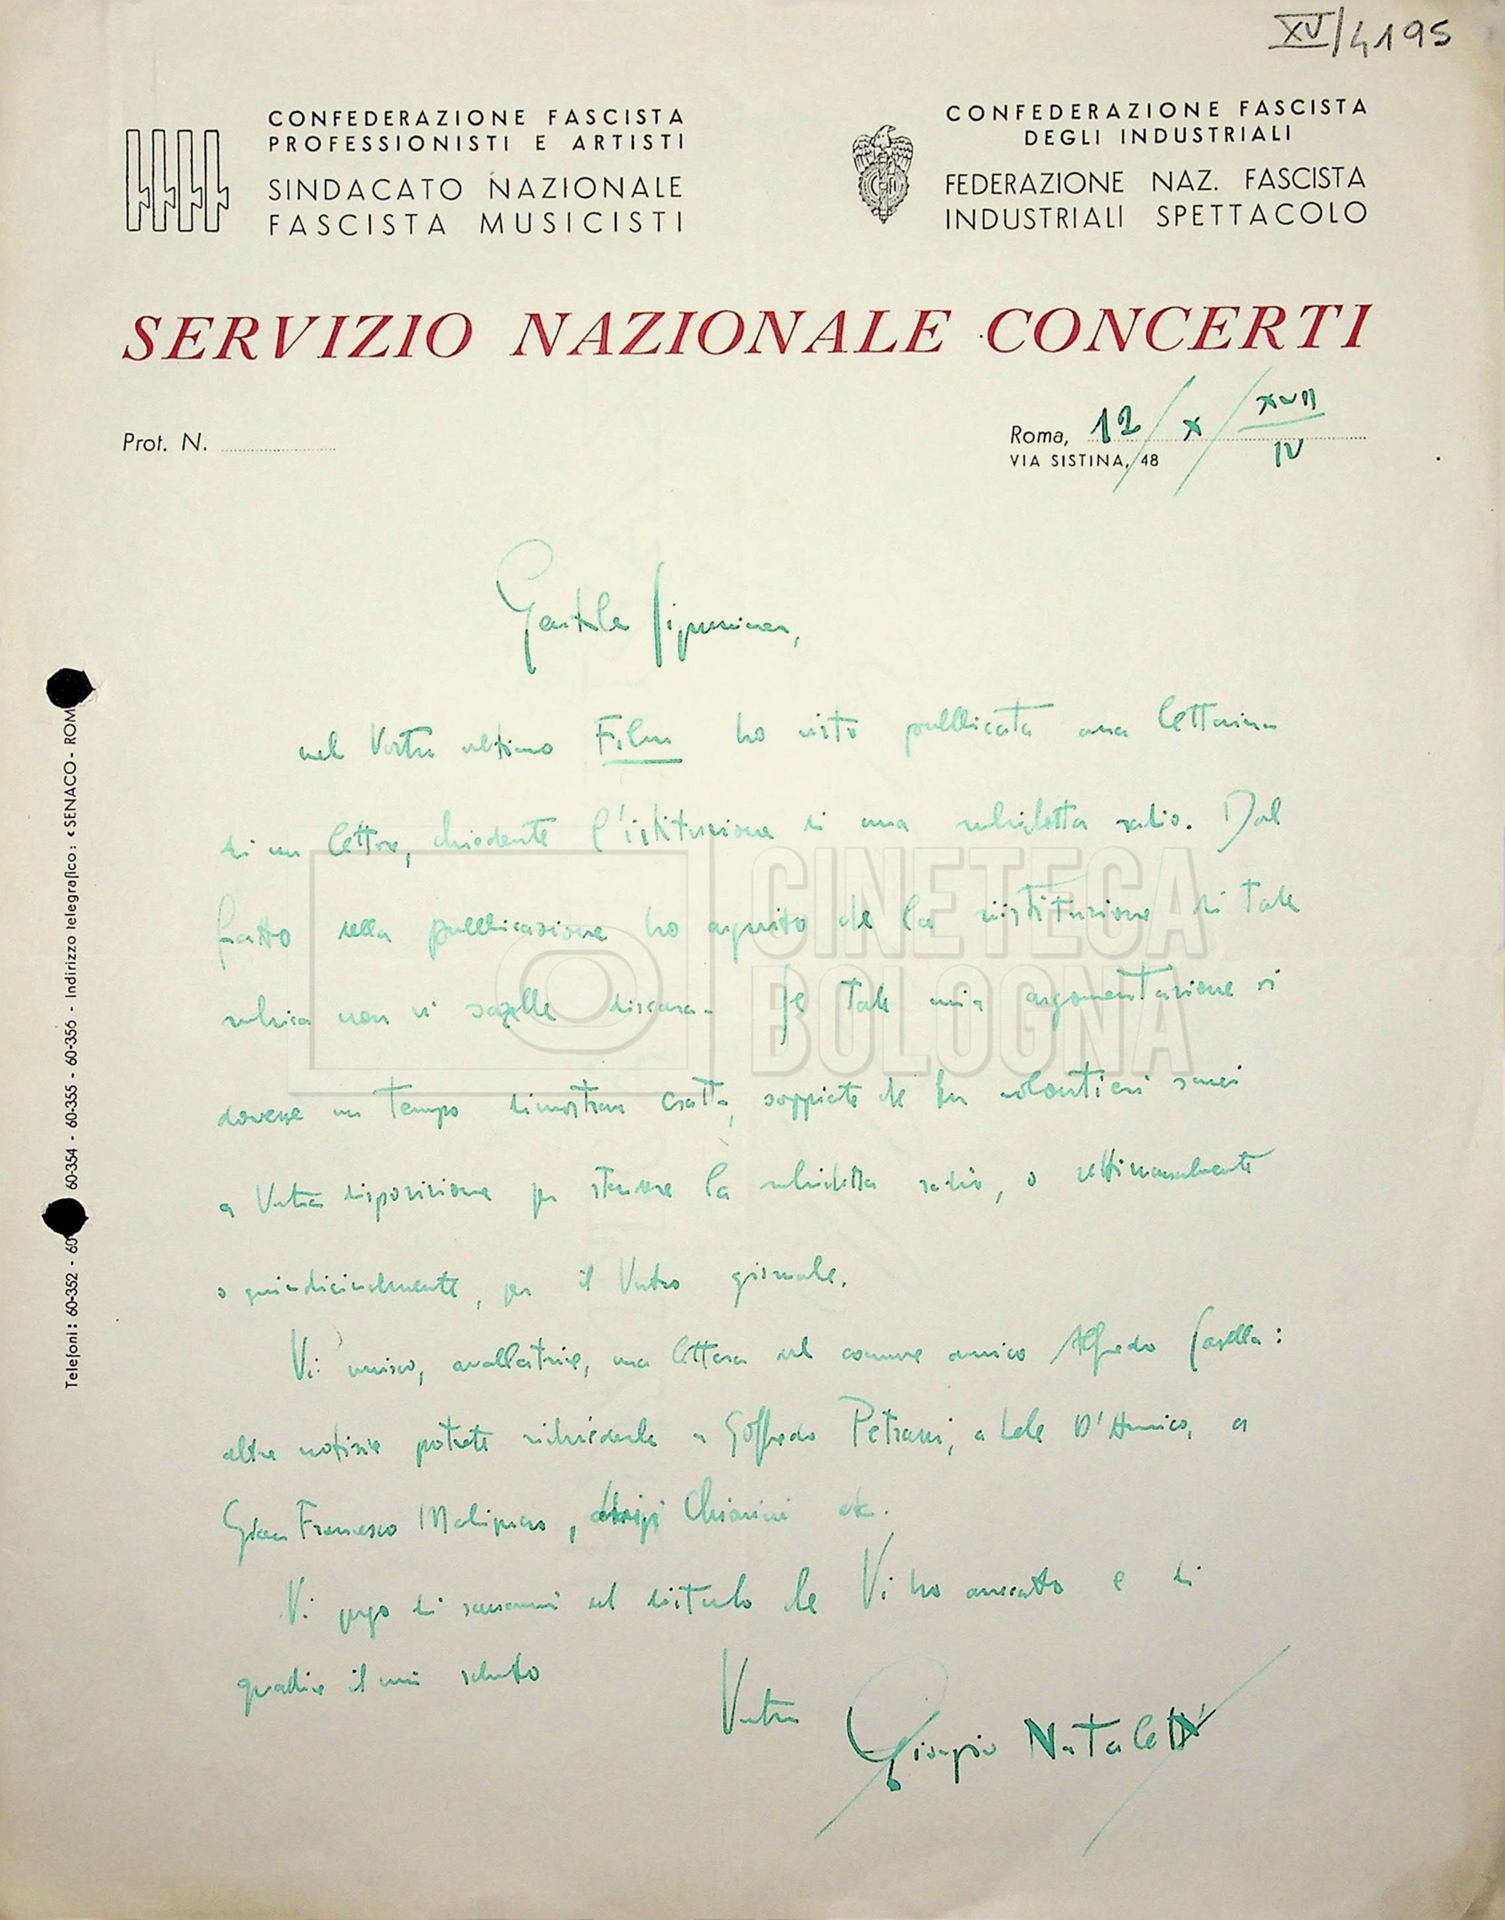 XV/4195
CONFEDERAZIONE FASCISTA
PROFESSIONISTI E ARTISTI
SINDACATO NAZIONALE
FASCISTA MUSICISTI
CONFEDERAZIONE FASCISTA
DEGLI INDUSTRIALI
FEDERAZIONE NAZ. FASCISTA
INDUSTRIALI SPETTACOLO
SERVIZIO NAZIONALE CONCERTI
Prot. N.
Roma, 12/X/XVII
IV
VIA SISTINA, 48
Gentile Signorina,
nel Vostro ultimo Film ho visto pubblicata una letterina
di un lettore, chiedente l'istituzione di una rubrichetta radio. Dal
fatto della pubblicazione ho capito che la istituzione di tale
rubrica non vi sarebbe discara. Se tale mia argomentazione si
dovesse un tempo dimostrare esatta, sappiate che ben volentieri sarei
a Vostra disposizione per stendere la rubrichetta radio, o settimanalmente
o quindicinalmente, per il Vostro giornale.
Vi unisco, una lettera del comune amico Alfredo Casella:
altre notizie potrete richiederle a Goffredo Petrassi, a Lele D'Amico, a
Gian Francesco Malipiero, Luigi Chiarini etc.
Vi prego di scusarmi del disturbo che Vi ho arrecato e di
gradire il mio saluto
Vostro Giorgio Nataletti
Telefoni: 60-352 - 60 60-354 - 60-355 - 60-356 - Indirizzo telegrafico: «SENACO - ROM
CINETECA
BOLOGNA